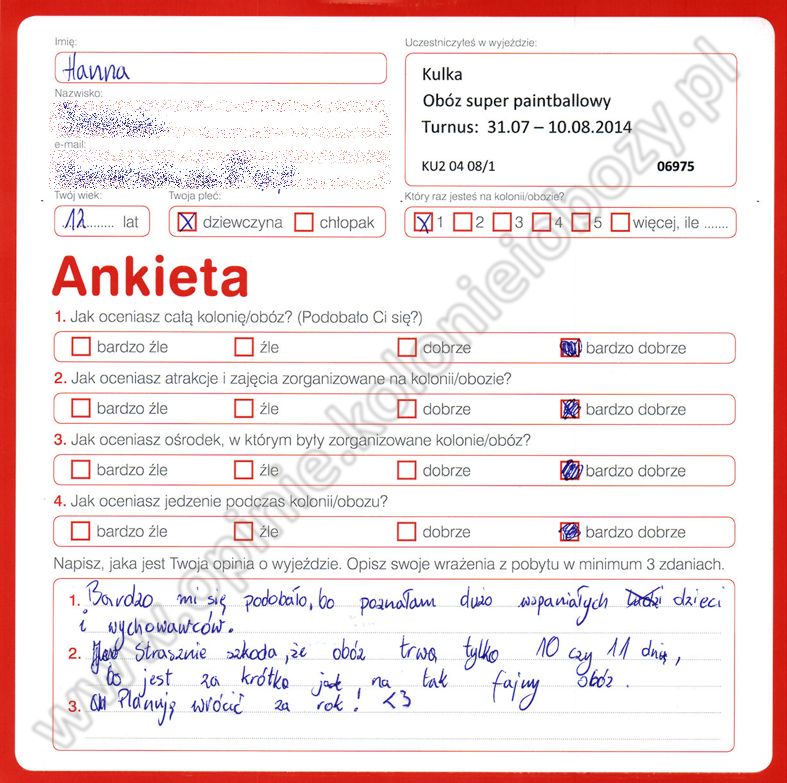 Imię:
Hanna
Uczestniczyłeś w wyjeździe:
Kulka
Obóz super paintballowy
Turnus: 31.07 – 10.08.2014
KU2 04 08/1 06975
Nazwisko:
e-mail:
Twój wiek:
12 lat
Twoja płeć:
dziewczyna chłopak
Który raz jesteś na kolonii/obozie?
1 2 3 4 5 więcej, ile .......
Ankieta
1. Jak oceniasz całą kolonię/obóz? (Podobało Ci się?)
bardzo źle źle dobrze bardzo dobrze
2. Jak oceniasz atrakcje i zajęcia zorganizowane na kolonii/obozie?
bardzo źle źle dobrze bardzo dobrze
3. Jak oceniasz ośrodek, w którym były zorganizowane kolonie/obóz?
bardzo źle źle dobrze bardzo dobrze
4. Jak oceniasz jedzenie podczas kolonii/obozu?
bardzo źle źle dobrze bardzo dobrze
Napisz, jaka jest Twoja opinia o wyjeździe. Opisz swoje wrażenia z pobytu w minimum 3 zdaniach.
1. Bardzo mi się podobało, bo poznałam dużo wspaniałych dzieci
i wychowawców.
2. Strasznie szkoda, że obóz trwa tylko 10 czy 11 dni,
bo jest za krótko jak na tak fajny obóz.
3. Planuję wrócić za rok! <3
www.opinie.kolonieiobozy.pl